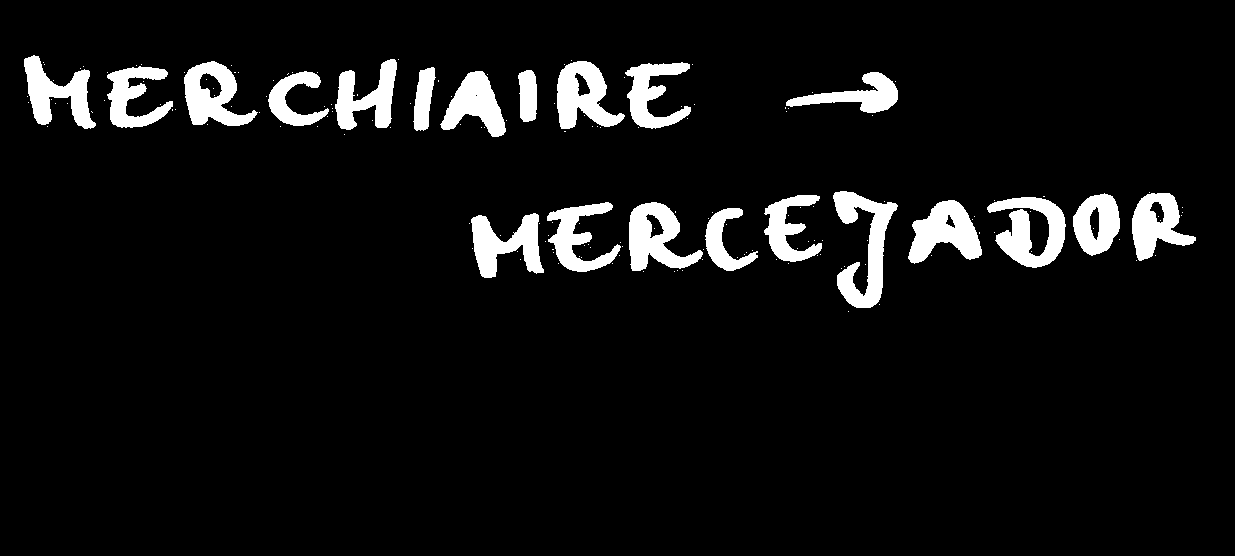 MERCHIAIRE →
MERCEJADOR